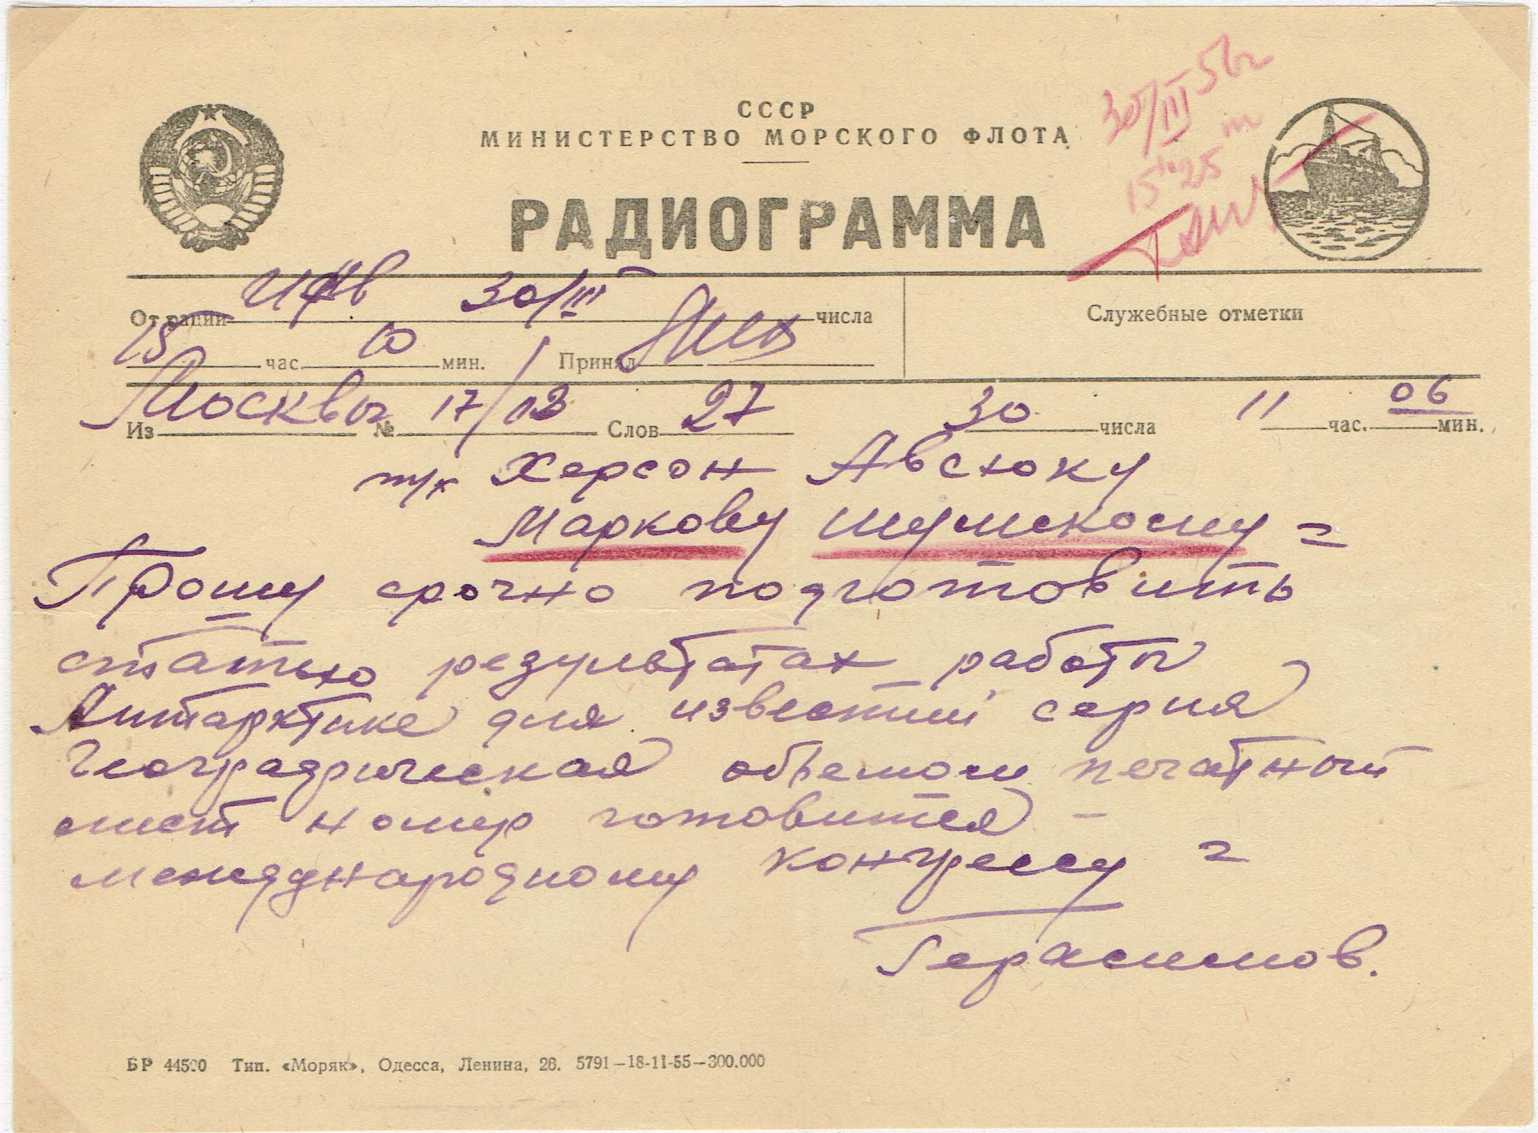 СССР
МИНИСТЕРСТВО МОРСКОГО ФЛОТА
30/III 56г
15 25
РАДИОГРАММА
От рации 30/III числа
Служебные отметки
15 час. 10 мин. Принял
Из Москвы № 17/03 Слов 27 30 числа 11 час. 06 мин.
т/х Херсон Авсюку
Маркову Шумскому =
Прошу срочно подготовить
статью результатах работы
Антарктике для известий серия
Географическая объемом печатный
лист номер готовится –
международному конгрессу =
Герасимов.
БР 44500 Тип. «Моряк», Одесса, Ленина, 26. 5791—18-11-55—300.000